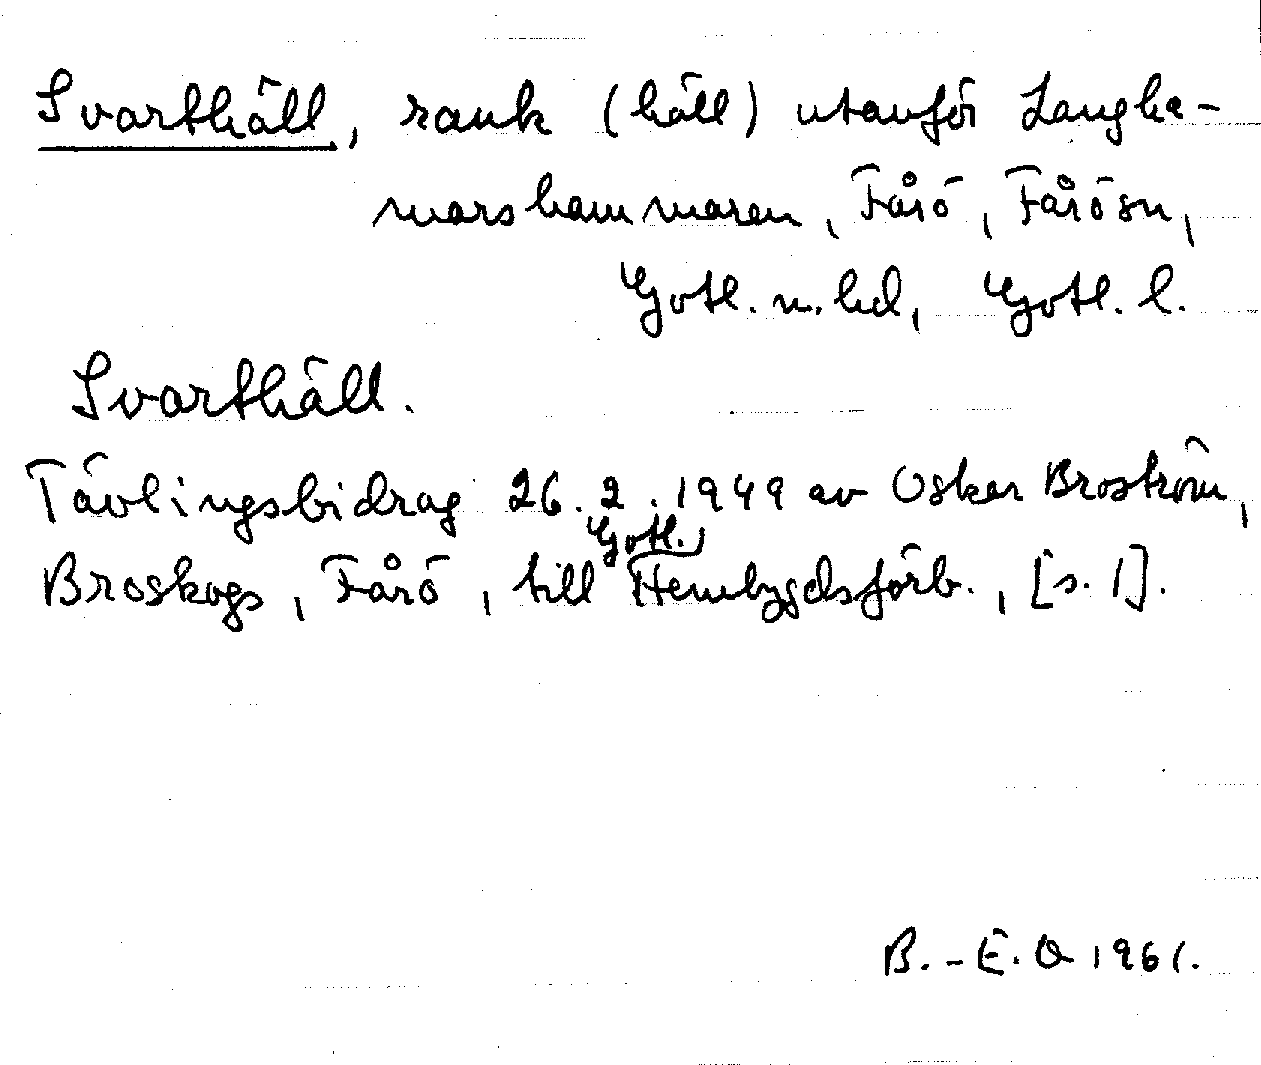 Svarthäll, rauk (häll) utanför Langha-
marshammaren, Fårö, Fårösn,
Gotl. n. hd, Gotl. l.
Svarthäll.
Tävlingsbidrag 26.2.1949 av Oskar Broström,
Broskogs, Fårö, till Gotl. Hembygdsförb., [s. 1].
B.-E. O 1961.